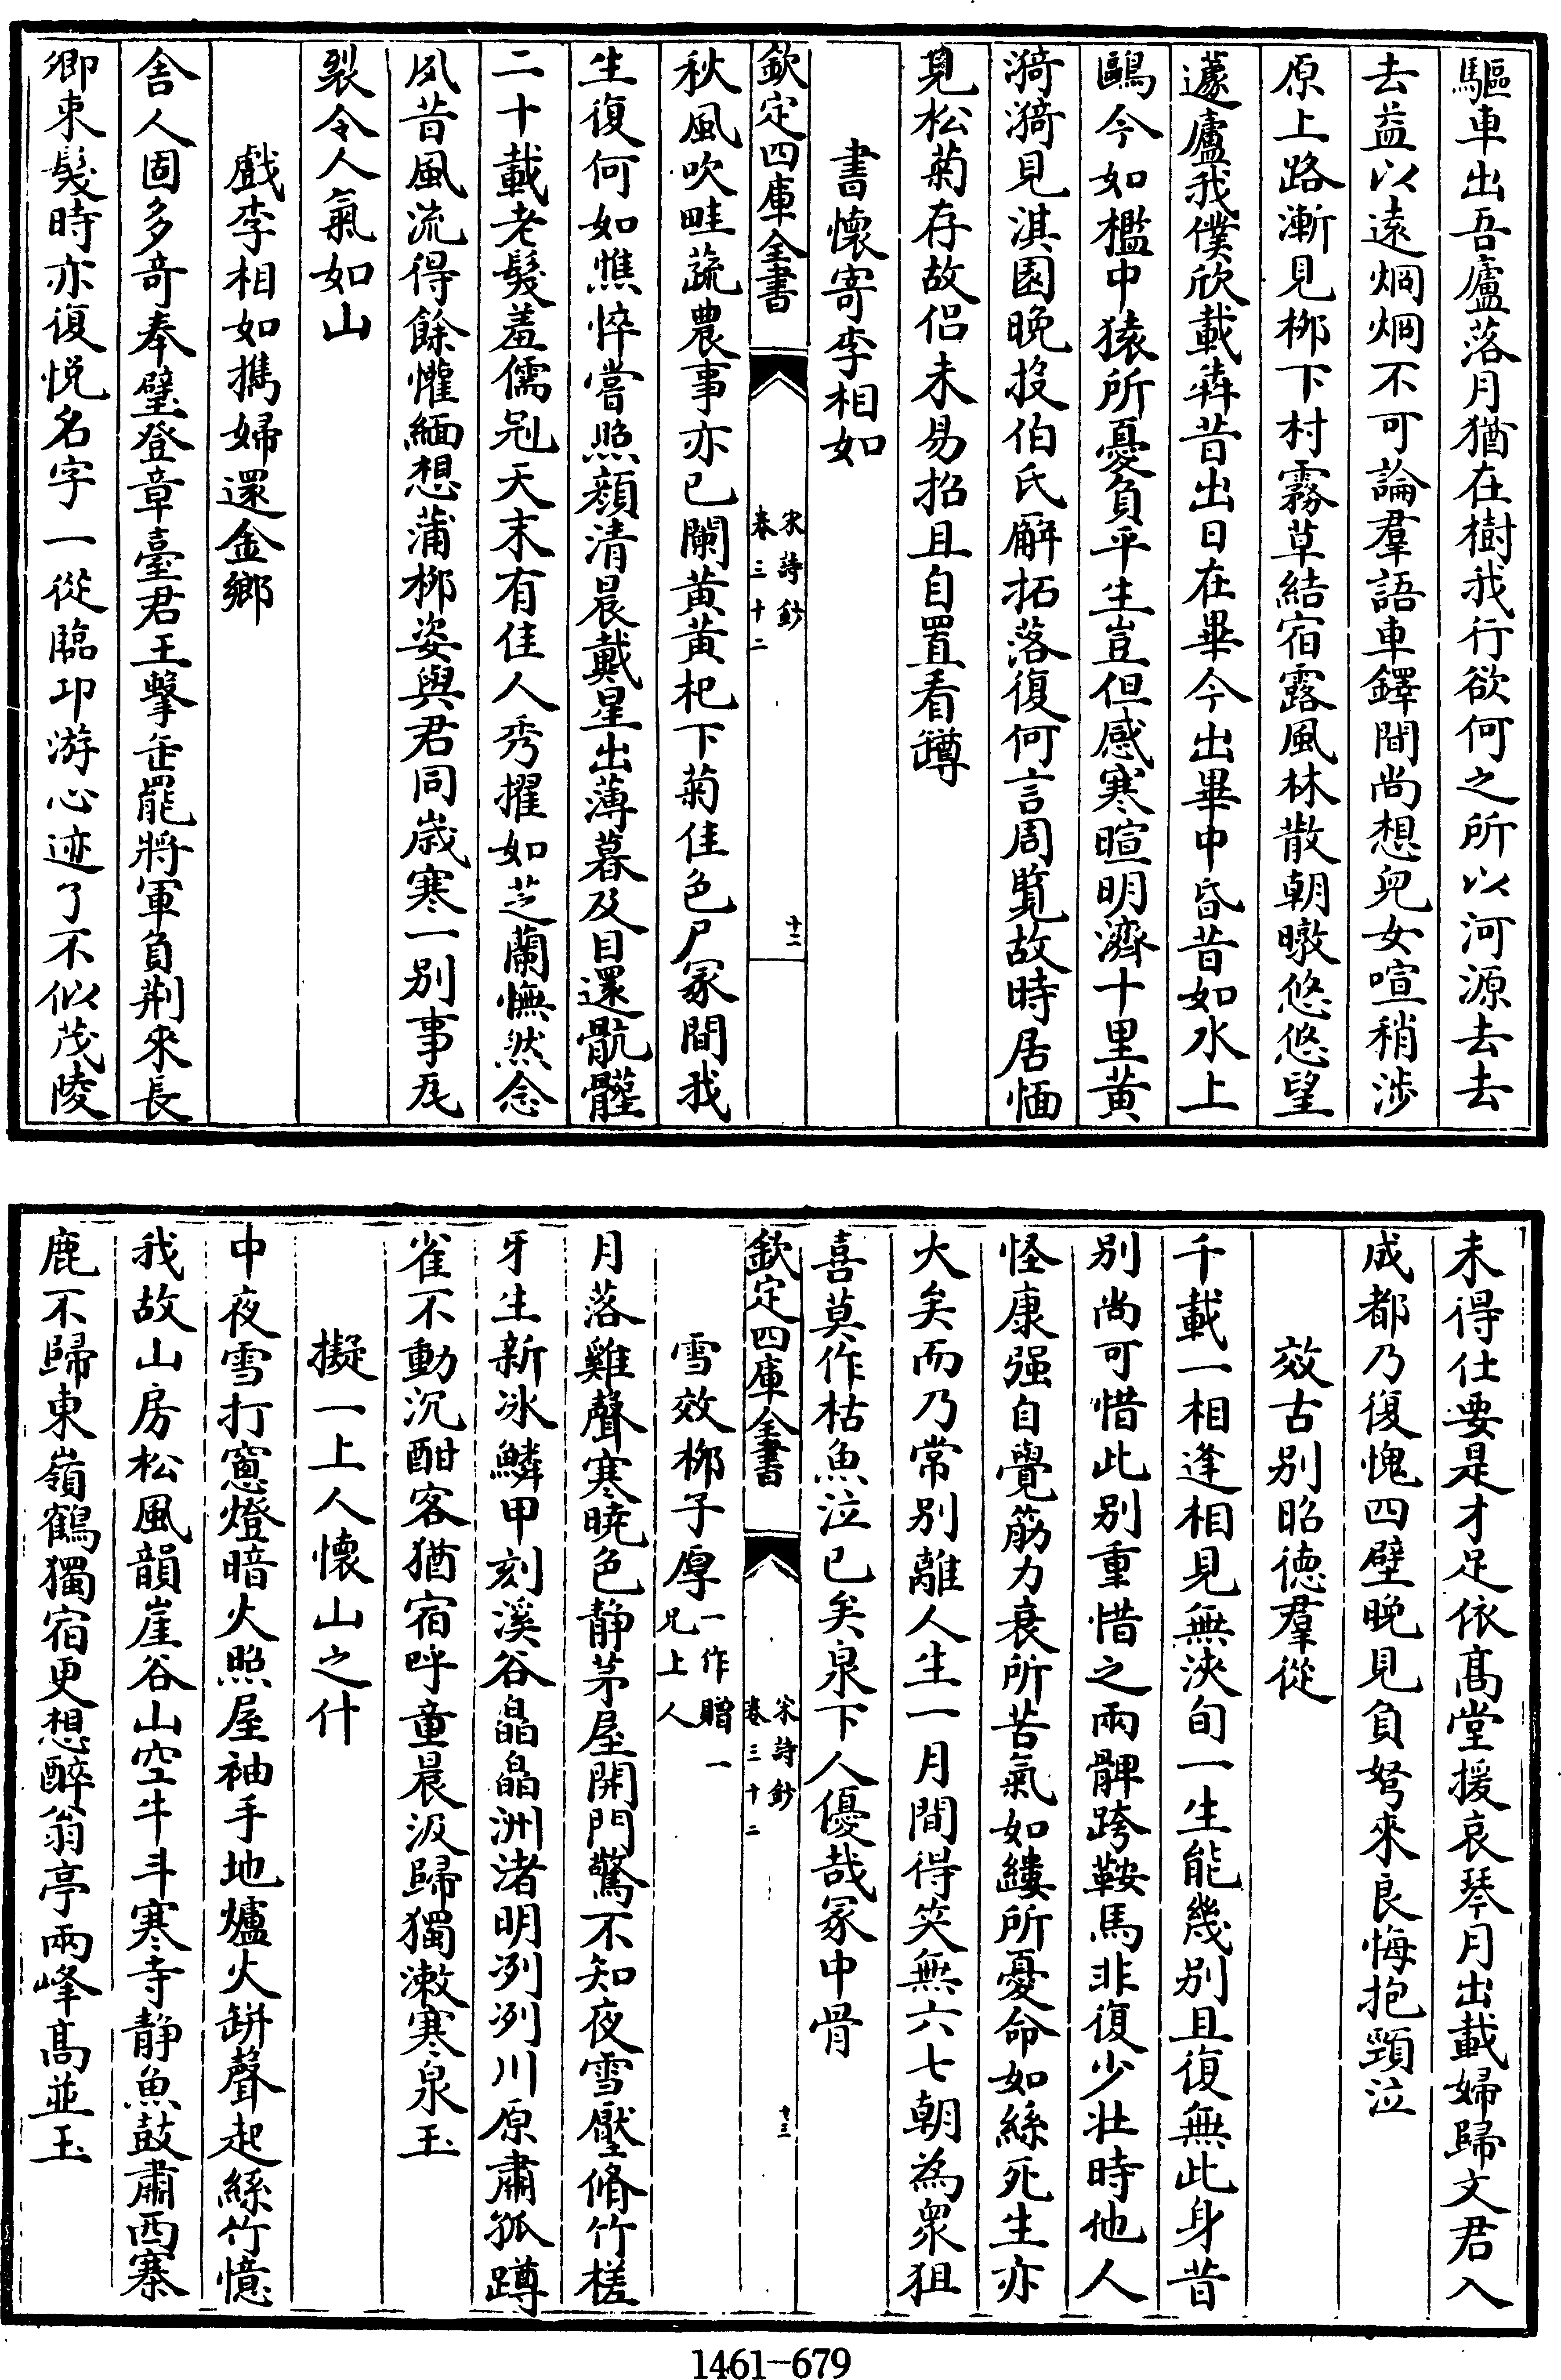 驅車出吾廬落月猶在樹我行欲何之所以河源去去
去益以遠烱烱不可論羣語車鐸間尚想兒女喧稍涉
原上路漸見栁下村霧草結宿露風林散朝暾悠悠望
蘧廬我僕欣載犇昔出日在畢今出畢中昏昔如水上
鷗今如檻中猿所憂負平生豈但感寒暄明濟十里黄
漪漪見淇園晚投伯氏廨拓落復何言周覽故時居愐
見松菊存故侣未易招且自置看罇
書懷寄李相如
欽定四庫全書
宋詩鈔
卷三十二
十二
秋風吹畦蔬農事亦已闌黄黄杞下菊佳色尸冢間我
生復何如憔悴嘗照顔清晨戴星出薄暮及日還骯髒
二十載老髮羞儒冠天末有佳人秀擢如芝蘭憮然念
夙昔風流得餘懽緬想蒲栁姿與君同歲寒一别事瓦
裂令人氣如山
戲李相如攜婦還金鄉
舍人固多奇奉璧登章臺君王擊缶罷將軍負荆來長
卿束髮時亦復悦名字一從臨卭游心迹了不似茂陵
未得仕要是才足依髙堂援哀琴月出載婦歸文君入
成都乃復愧四壁晚見負弩來良悔抱頸泣
效古别昭德羣從
千載一相逢相見無浹旬一生能幾别且復無此身昔
别尚可惜此别重惜之兩髀跨鞍馬非復少壯時他人
怪康强自覺筋力衰所苦氣如縷所憂命如絲死生亦
大矣而乃常别離人生一月間得笑無六七朝為衆狙
喜莫作枯魚泣已矣泉下人優哉冢中骨
欽定四庫全書
宋詩鈔
卷三十二
十三
雪效栁子厚一作贈一兄上人
月落雞聲寒曉色静茅屋開門驚不知夜雪壓脩竹槎
牙生新冰鱗甲刻溪谷皛皛洲渚明冽冽川原肅狐蹲
雀不動沉酣客猶宿呼童晨汲歸獨漱寒泉玉
擬一上人懷山之什
中夜雪打窻燈暗火照屋袖手地爐火缾聲起絲竹憶
我故山房松風韻崖谷山空牛斗寒寺静魚鼓肅西寨
鹿不歸東嶺鶴獨宿更想醉翁亭兩峰髙並玉
1461-679